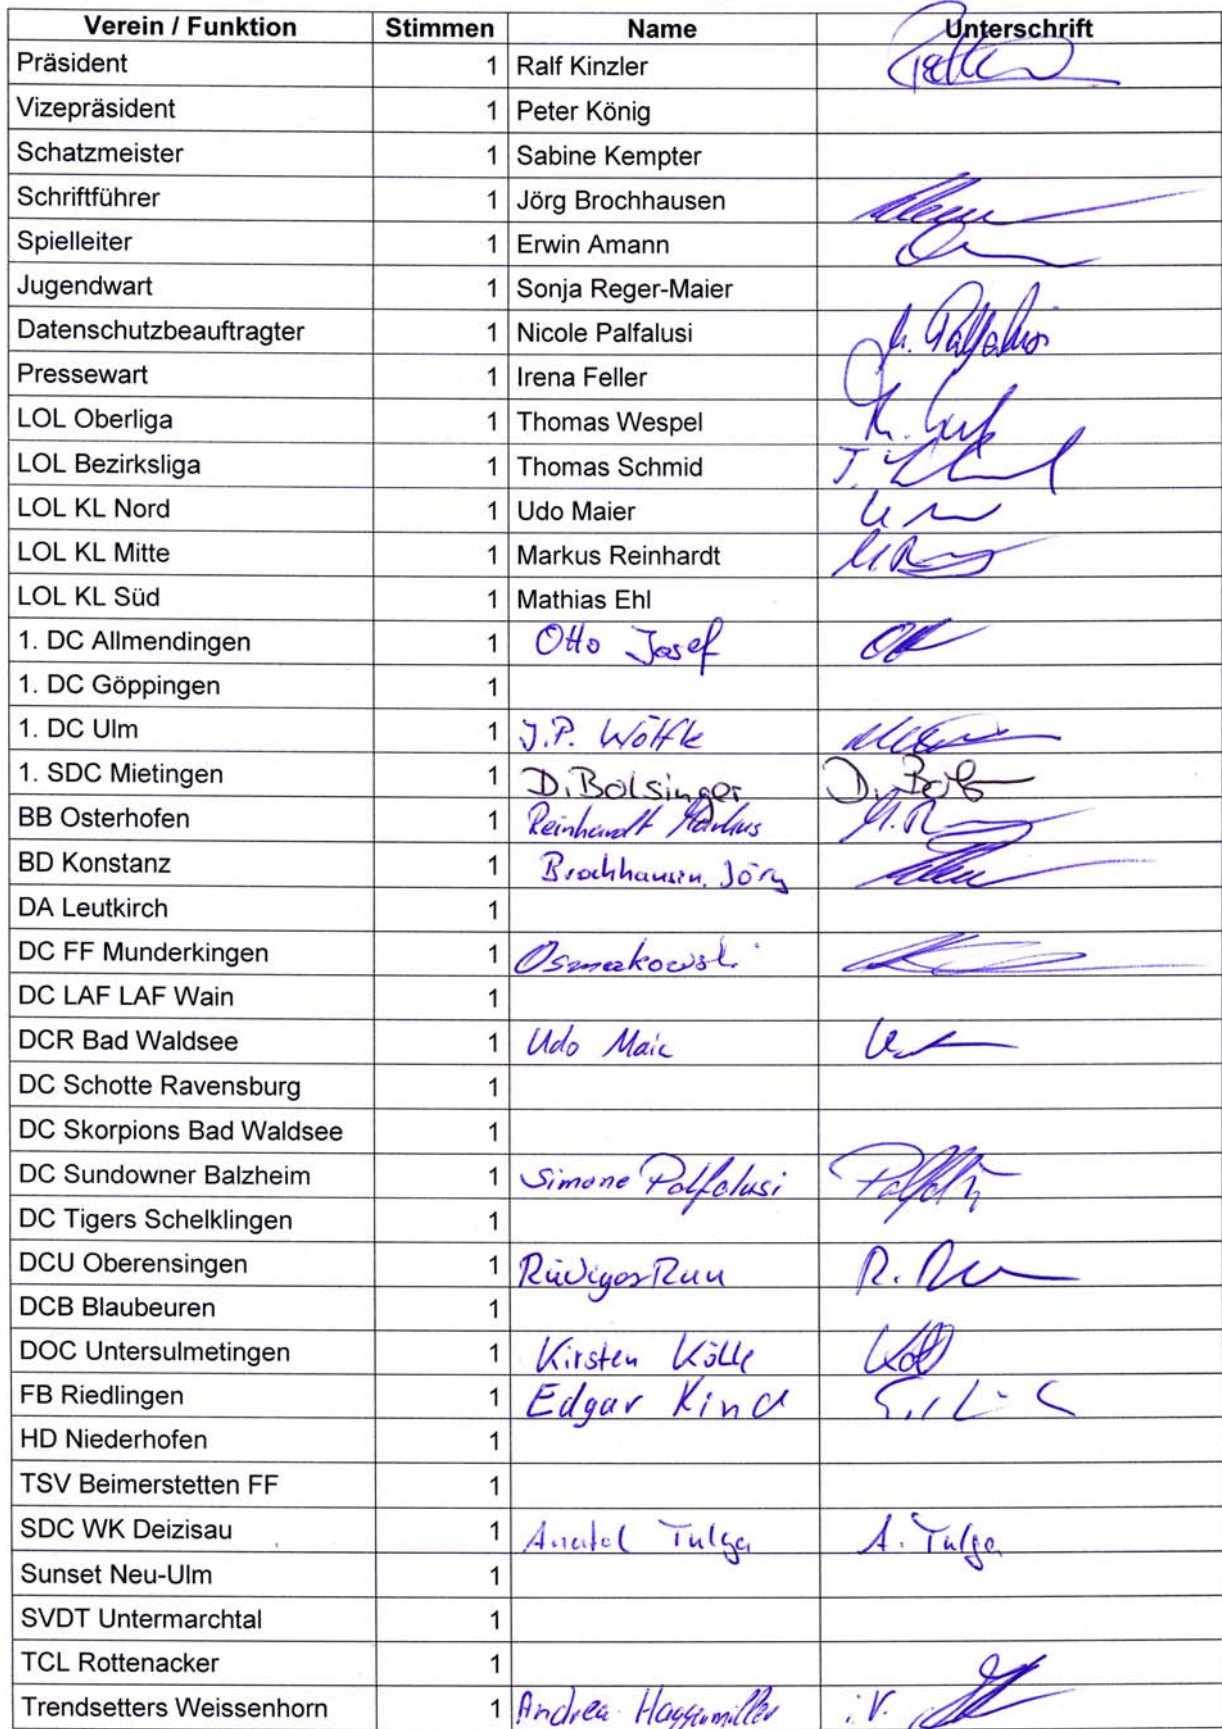 Verein / Funktion Stimmen Name Unterschrift
Präsident 1 Ralf Kinzler
Vizepräsident 1 Peter König
Schatzmeister 1 Sabine Kempter
Schriftführer 1 Jörg Brochhausen
Spielleiter 1 Erwin Amann
Jugendwart 1 Sonja Reger-Maier
Datenschutzbeauftragter 1 Nicole Palfalusi
Pressewart 1 Irena Feller
LOL Oberliga 1 Thomas Wespel
LOL Bezirksliga 1 Thomas Schmid
LOL KL Nord 1 Udo Maier
LOL KL Mitte 1 Markus Reinhardt
LOL KL Süd 1 Mathias Ehl
1. DC Allmendingen 1 Otto Josef
1. DC Göppingen 1
1. DC Ulm 1 J.P. Wölfle
1. SDC Mietingen 1 D. Bolsinger
BB Osterhofen 1 Reinhardt Markus
BD Konstanz 1 Brochhausen, Jörg
DA Leutkirch 1
DC FF Munderkingen 1 Osmakowski
DC LAF LAF Wain 1
DCR Bad Waldsee 1 Udo Maier
DC Schotte Ravensburg 1
DC Skorpions Bad Waldsee 1
DC Sundowner Balzheim 1 Simone Palfalusi
DC Tigers Schelklingen 1
DCU Oberensingen 1
DCB Blaubeuren 1
DOC Untersulmetingen 1 Kirsten Kölle
FB Riedlingen 1 Edgar Kind
HD Niederhofen 1
TSV Beimerstetten FF 1
SDC WK Deizisau 1 Anatol Tulga A. Tulga
Sunset Neu-Ulm 1
SVDT Untermarchtal 1
TCL Rottenacker 1
Trendsetters Weissenhorn 1 Andrea Haggenmiller i.V.